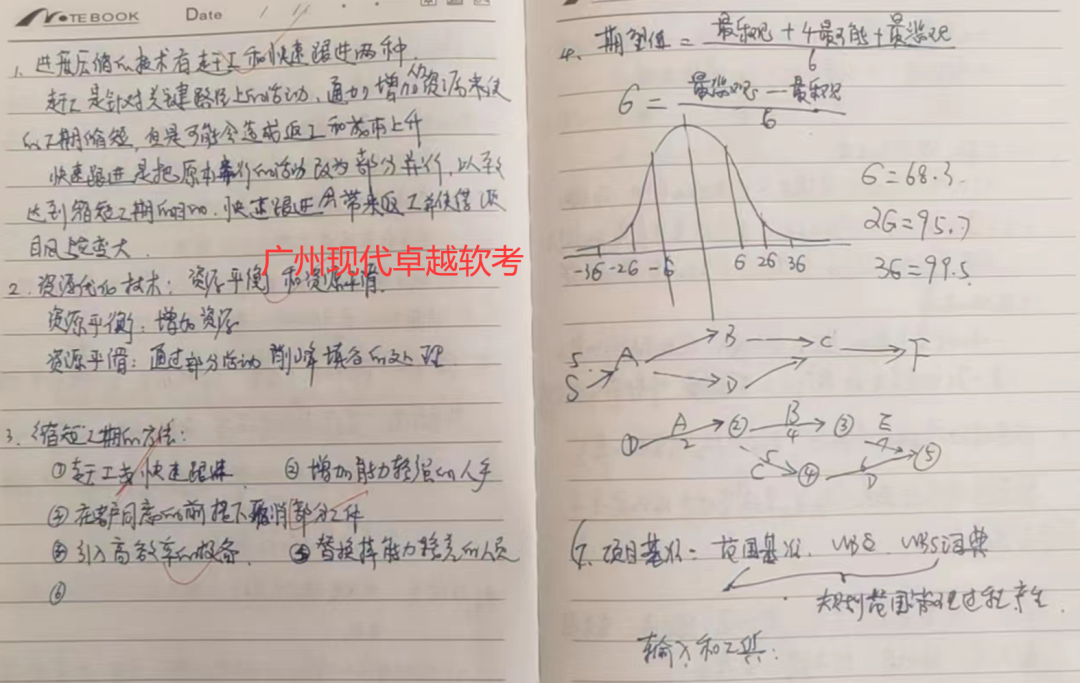 NOTEBOOK Date
1. 进度压缩的技术有赶工和快速跟进两种.
赶工是针对关键路径上的活动、通过增加资源来使
的工期缩短, 但是可能会造成返工和成本上升
快速跟进是把原本串行的活动改为部分并行, 以至
达到缩短工期的目的. 快速跟进会带来返工并使得项
目风险变大.
广州现代卓越软考
2. 资源优化技术: 资源平衡和资源平滑.
资源平衡: 增加资源
资源平滑: 通过部分活动削峰填谷的处理
3. 缩短工期的方法:
①赶工或快速跟进 ②增加能力较强的人手
③在客户同意的前提下取消部分工作
④引入高效率的设备. ⑤替换掉能力较差的人员
⑥
4. 期望值 = 最乐观 + 4最可能 + 最悲观
6
6 = 最悲观 - 最乐观
6
6 = 68.3
26 = 95.7
36 = 99.5
-36 -26 -6 6 26 36
B C F
S A
S D
① A 2 ② B 4 ③ E 4 ⑤
C 5 ④ 6 D
项目基准 = 范围基准、WBS、WBS词典
规划范围管理过程产生.
输入和工具: